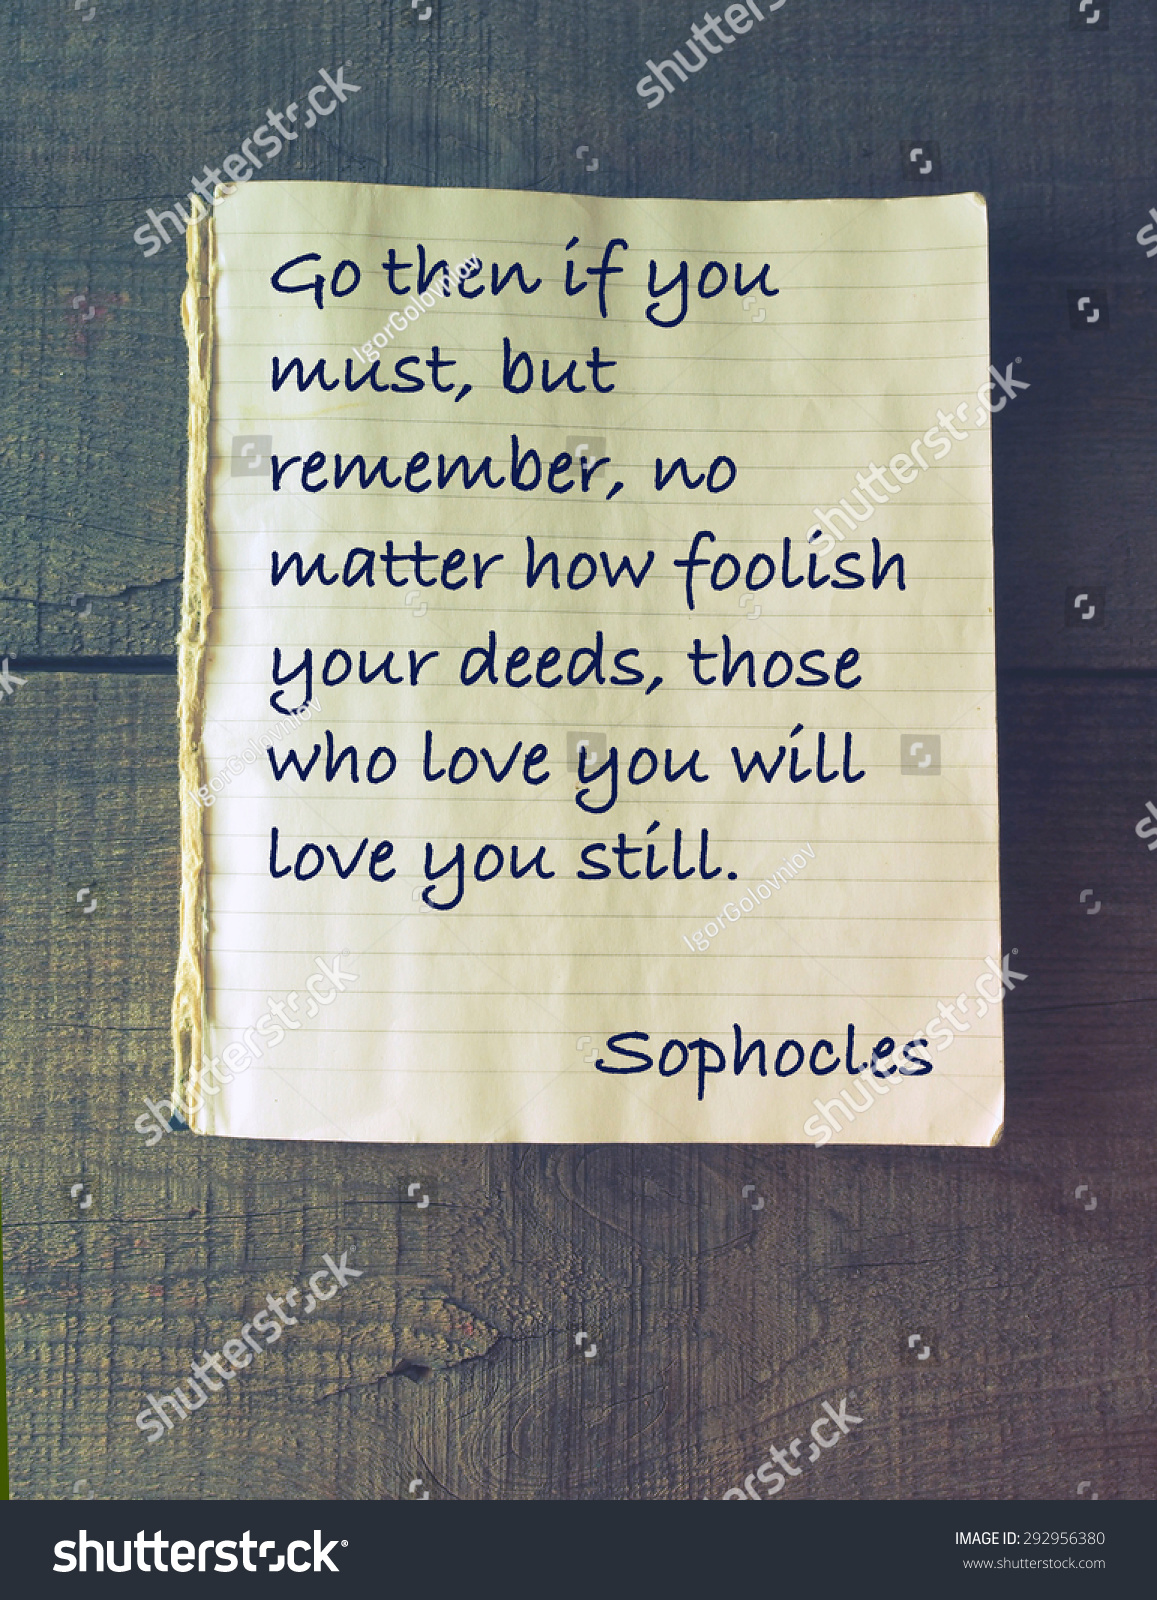 Go then if you
must, but
remember, no
matter how foolish
your deeds, those
who love you will
love you still.
Sophocles
shutterstock
IgorGolovniov
shutterstock
IMAGE ID: 292956380
www.shutterstock.com